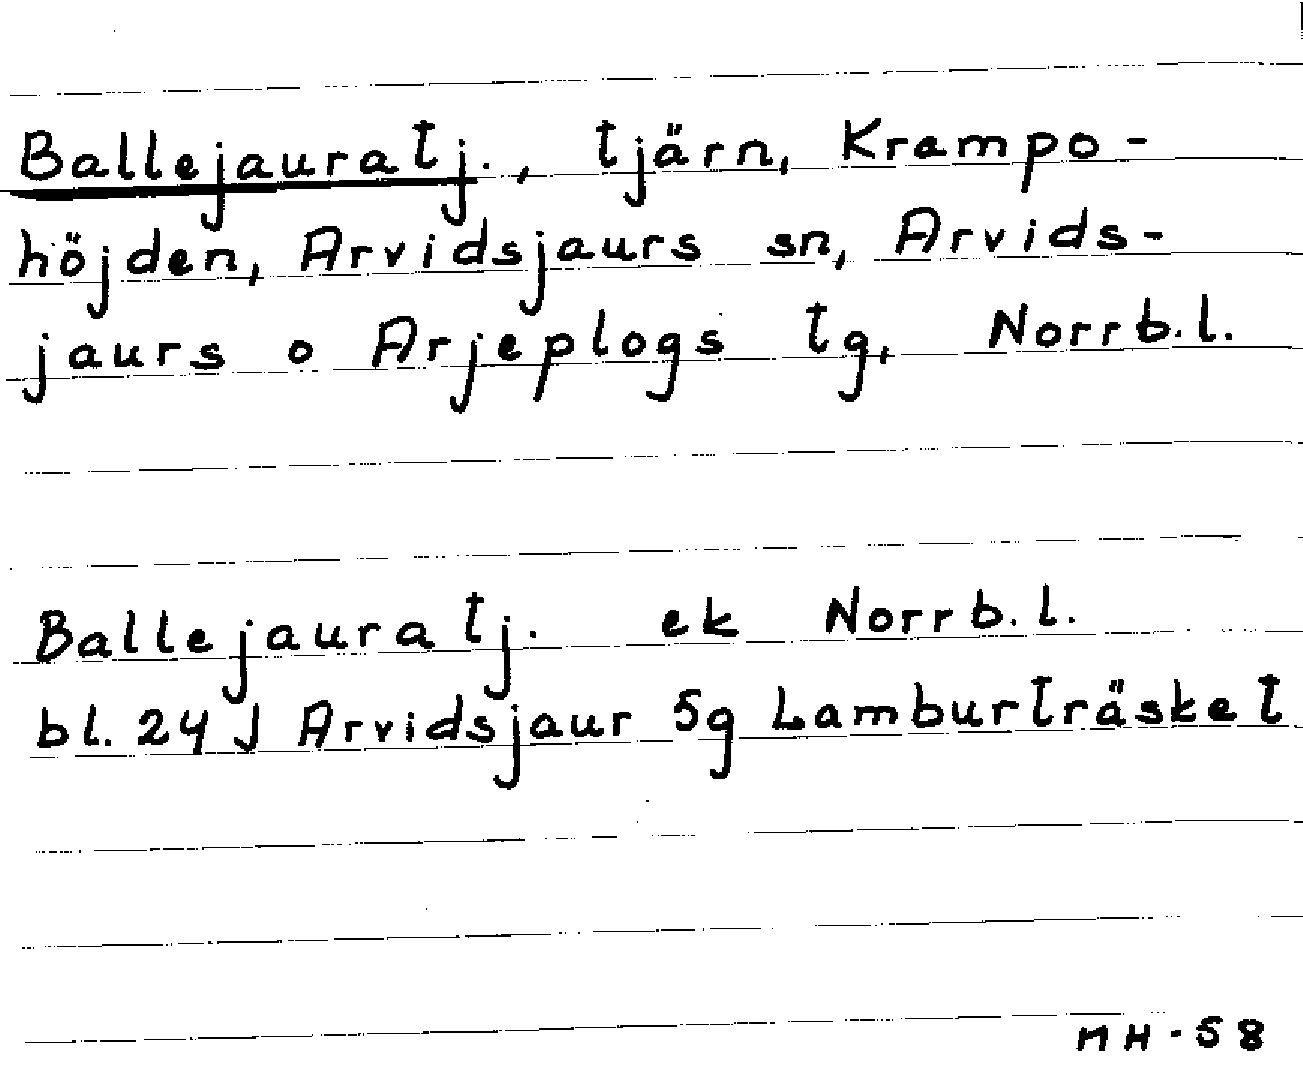 Ballejauratj., tjärn, Krampo-
höjden, Arvidsjaurs sn, Arvids-
jaurs o Arjeplogs tg, Norrb.l.
Ballejauratj. ek Norrb.l.
bl. 24 J Arvidsjaur 5g Lamburträsket
MH-58